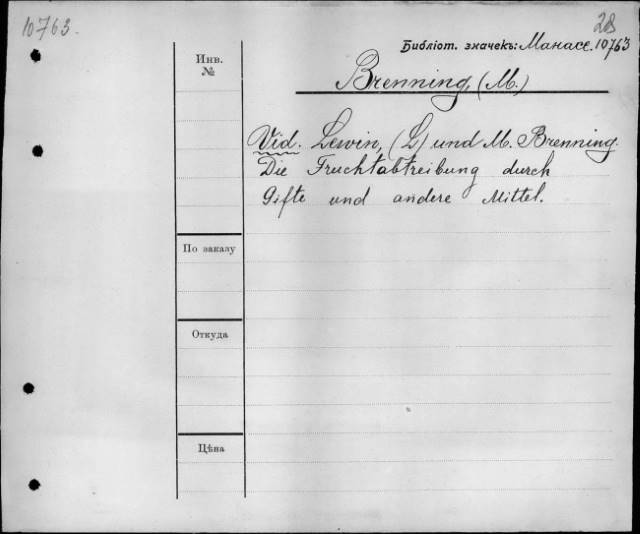 10763.
28
Библіот. значекъ: Манасе. 10763
Инв.
№
Brenning, (M.)
Vid. Lewin, (L) und M. Brenning.
Die Fruchtabtreibung durch
Gifte und andere Mittel.
По заказу
Откуда
Цѣна